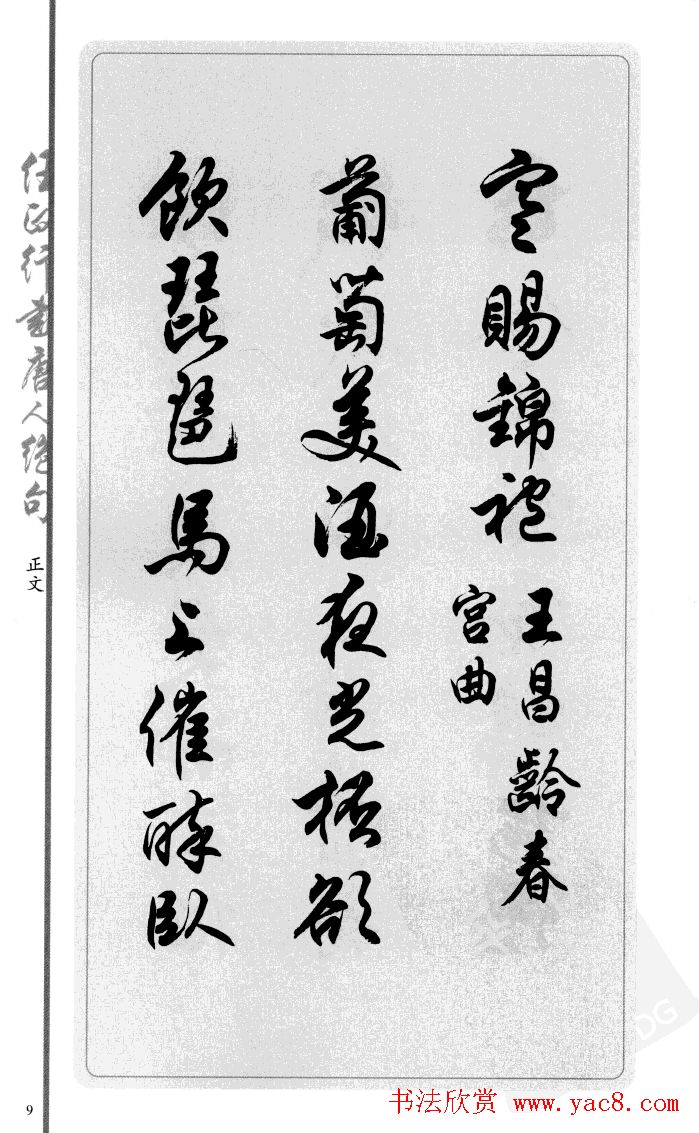 寒賜錦袍
王昌齡春
宮曲
葡萄美酒夜光桮欲
飲琵琶馬上催醉臥
任政行書唐人絕句
正文
9
书法欣赏 www.yac8.com
DG